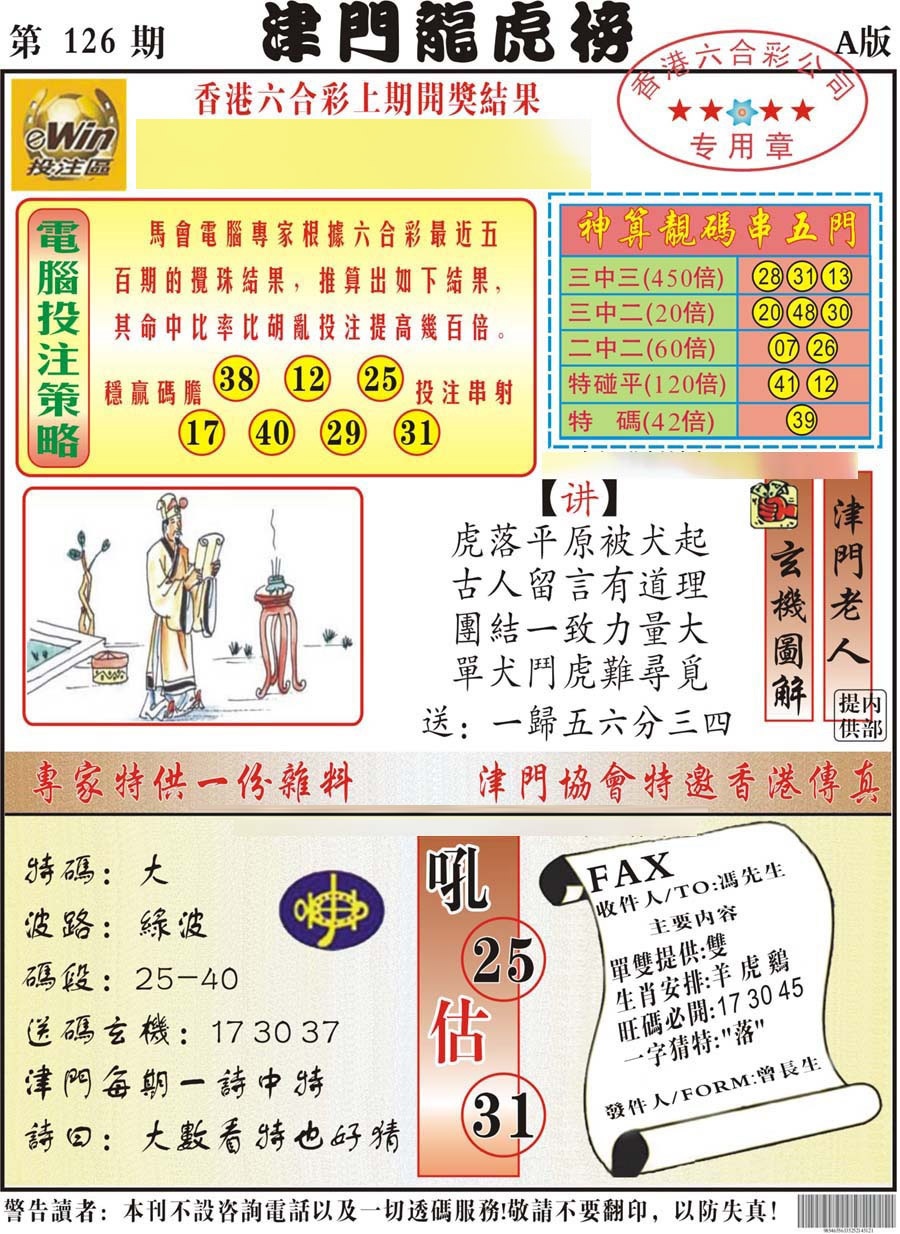 第 126 期
津門龍虎榜
A版
eWin
投注區
香港六合彩上期開獎結果
香港六合彩公司
★★★★
专用章
電腦投注策略
馬會電腦專家根據六合彩最近五
百期的攪珠結果，推算出如下結果，
其命中比率比胡亂投注提高幾百倍。
穩贏碼膽 38 12 25 投注串射
17 40 29 31
神算靚碼串五門
三中三(450倍) 28 31 13
三中二(20倍) 20 48 30
二中二(60倍) 07 26
特碰平(120倍) 41 12
特 碼(42倍) 39
【讲】
虎落平原被犬起
古人留言有道理
團結一致力量大
單犬鬥虎難尋覓
送：一歸五六分三四
玄機圖解
津門老人
内部提供
專家特供一份雜料
津門協會特邀香港傳真
特碼：大
波路：綠波
碼段：25-40
送碼玄機：17 30 37
津門每期一詩中特
詩曰：大數看特也好猜
吼
25
估
31
FAX
收件人/TO:馮先生
主要内容
單雙提供:雙
生肖安排:羊 虎 鷄
旺碼必開:17 30 45
一字猜特:"落"
發件人/FORM:曾長生
警告讀者：本刊不設咨詢電話以及一切透碼服務!敬請不要翻印，以防失真!